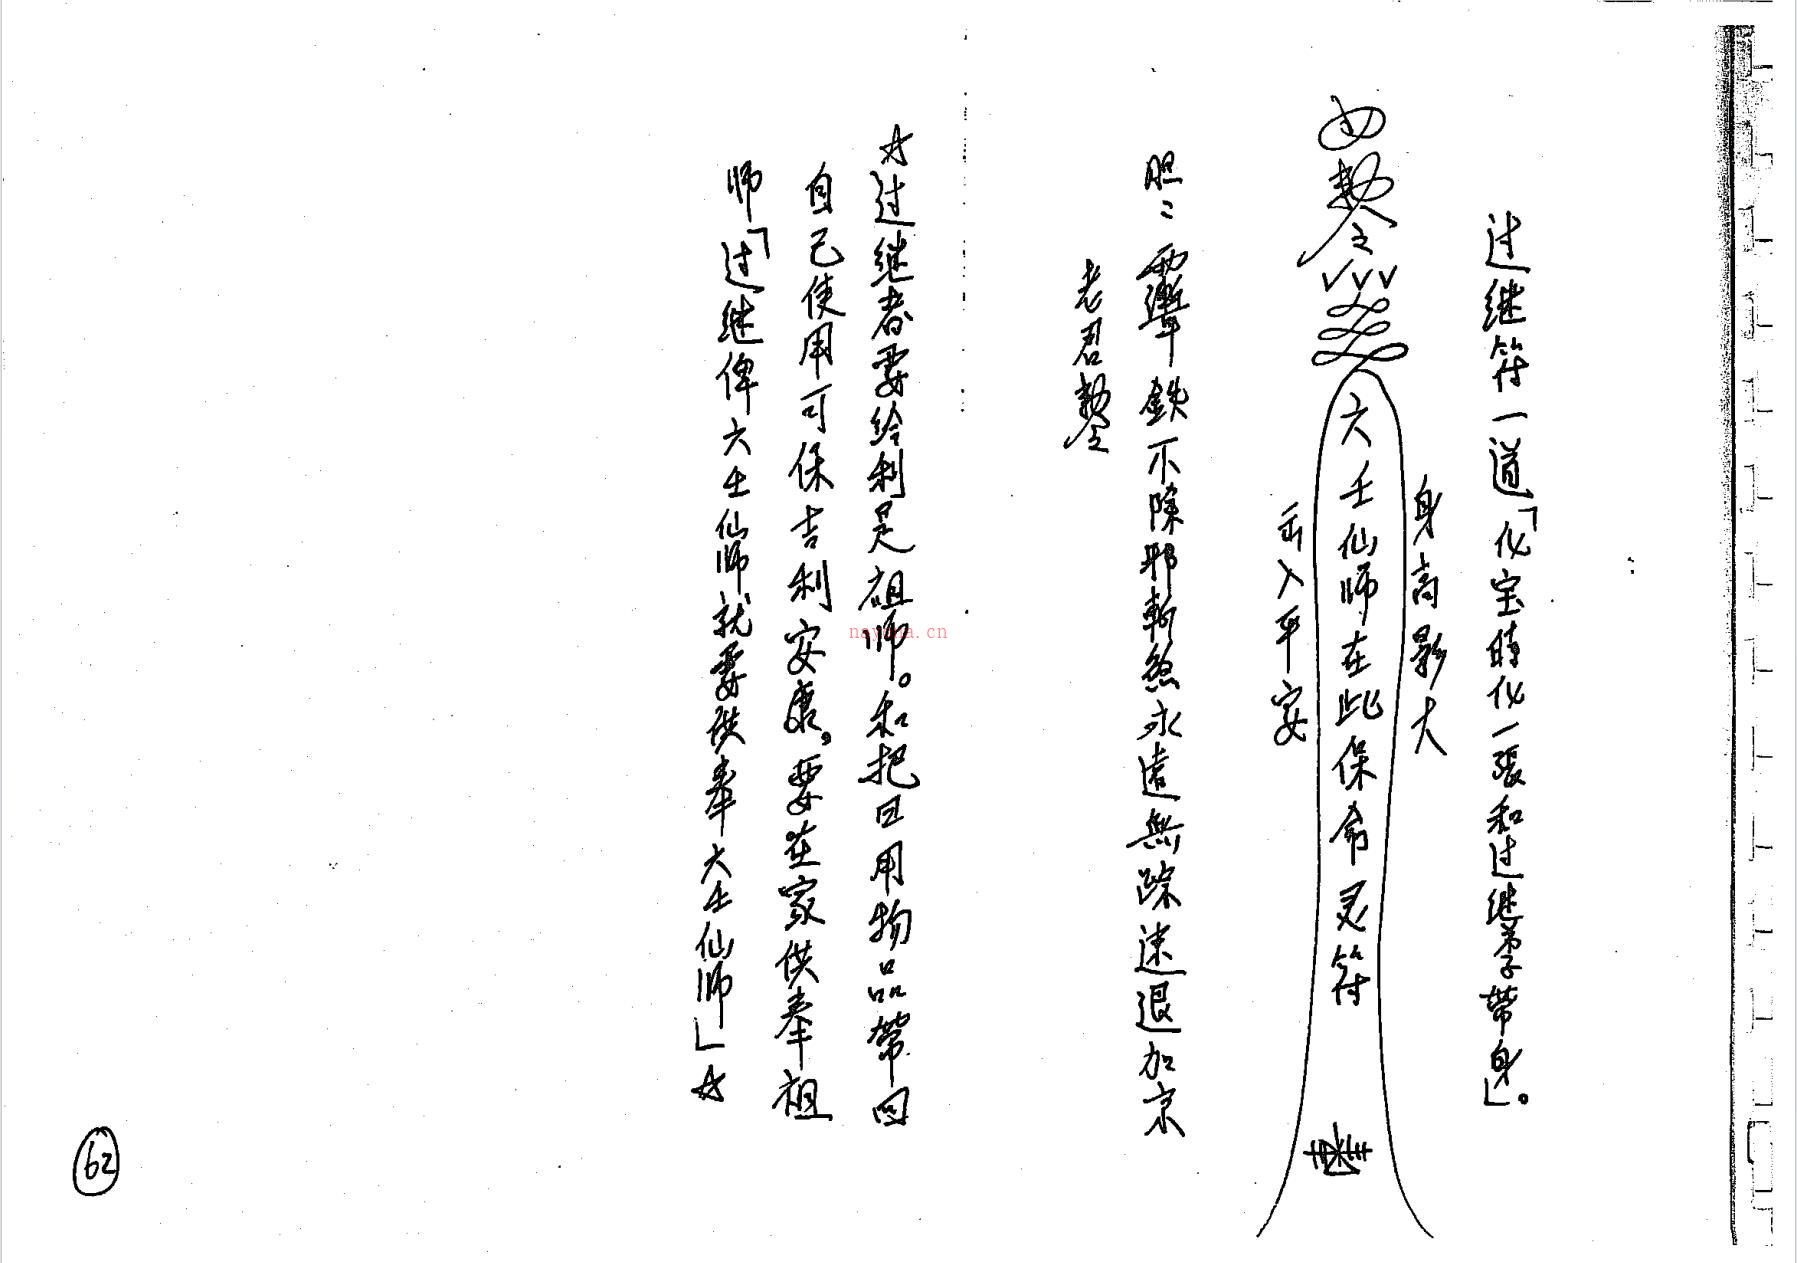 过继符一道「化宝时化一張和过继弟子带身」。
身高影大
敕令
六壬仙师在此保命灵符
出入平安
胆〻 鉄不除邪斬煞永遠無踪速退加京
老君敕令
☆过继者要给利是祖师。和把日用物品帶回
自己使用可保吉利安康。要在家供奉祖
师「过继俾六壬仙师就要供奉六壬仙师」☆
nayona.cn
62